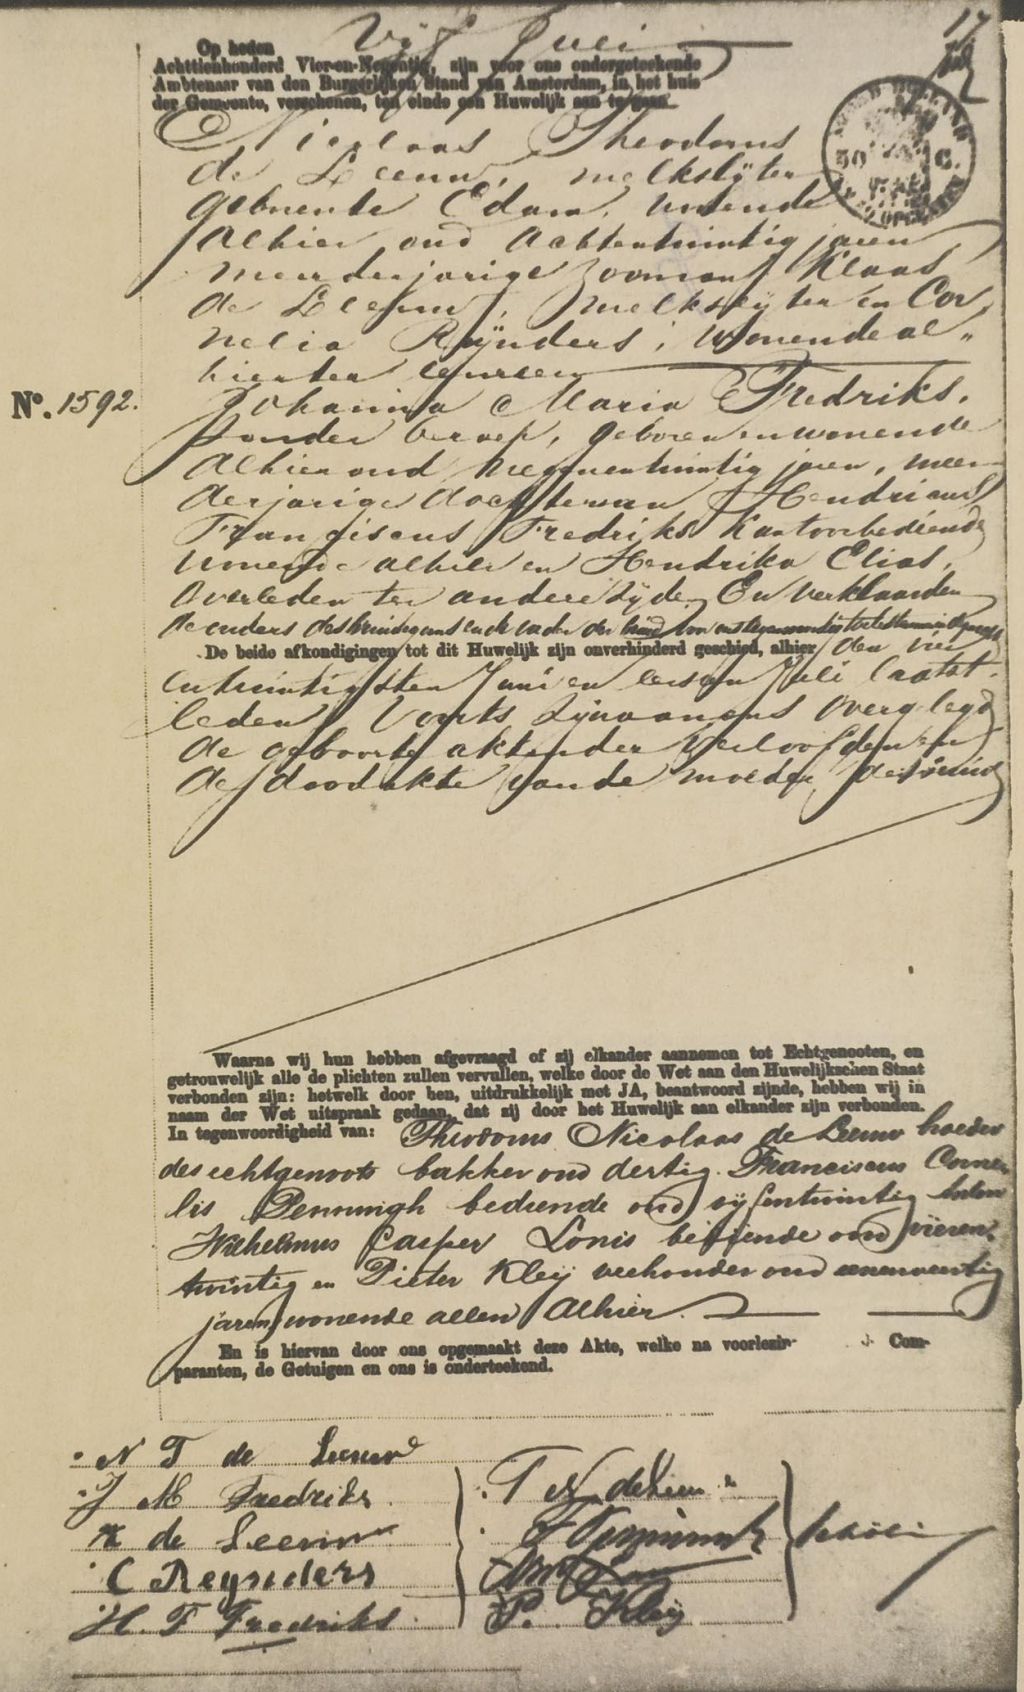 17
Op heden vijf Juli
Achttienhonderd Vier-en-Negentig, zijn voor ons ondergeteekende
Ambtenaar van den Burgerlijken Stand van Amsterdam, in het huis
der Gemeente, verschenen, ten einde een Huwelijk aan te gaan
Nicolaas Theodorus
de Leeuw, melkslijter
geboren te Edam, wonende
alhier oud achtentwintig jaren
meerderjarige zoon van Klaas
de Leeuw, melkslijter en Cor
nelia Reijnders, wonende al„
hier ter eenre en
Nº. 1592.
Johanna Maria Fredriks,
zonder beroep, geboren en wonende
alhier oud negenentwintig jaren, meer
derjarige dochter van Hendricus
Franciscus Fredriks Kantoorbediende
wonende alhier en Hendrika Elias,
overleden ter andere zijde, En verklaarden
de ouders des bruidegoms en de vader der bruid
De beide afkondigingen tot dit Huwelijk zijn onverhinderd geschied, alhier den vier
entwintigsten Juni en eersten Juli laatst.
leden Voorts zijn aan ons overgelegd
de geboorte akten der verloofden en
de doodakte van de moeder der bruid
Waarna wij hun hebben afgevraagd of zij elkander aannemen tot Echtgenooten, en
getrouwelijk alle de plichten zullen vervullen, welke door de Wet aan den Huwelijkschen Staat
verbonden zijn: hetwelk door hen, uitdrukkelijk met JA, beantwoord zijnde, hebben wij in
naam der Wet uitspraak gedaan, dat zij door het Huwelijk aan elkander zijn verbonden.
In tegenwoordigheid van: Theodorus Nicolaas de Leeuw broeder
des echtgenoots bakker oud dertig Franciscus Corne
lis Penningh bediende oud vijfentwintig
Wilhelmus Casper Lonis bediende oud vieren
twintig en Pieter Kleij veehouder oud
jaren wonende allen Alhier.
En is hiervan door ons opgemaakt deze Akte, welke na voorlezin Com-
paranten, de Getuigen en ons is onderteekend.
N T de Leeuw
J M Fredriks
K de Leeuw
C Reynders
H. F Fredriks
T N de Leeuw
P. Kleij